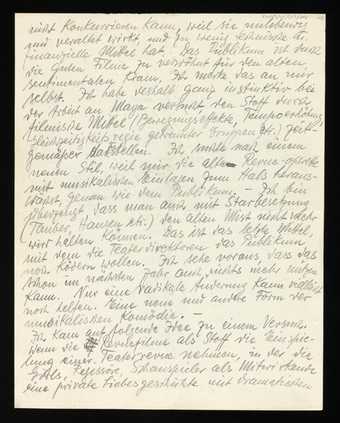 nicht Konkurrieren kann, weil sie unlebendig
und veraltet wirkt und zu wenig technische u.
finanzielle Mittel hat. Das Publikum ist durch
die guten Filme zu verwöhnt für den alten
sentimentalen Kram. Ich merke das an mir
selbst. Ich habe deshalb ganz instinktiv bei
der Arbeit an Maya versucht den Stoff durch
filmische Mittel (Bewegungseffekte, Tempoerhöhung,
Gleichzeitigkeitsregie getrennter Gruppen etc.) zeit-
gemäßer . Ich suchte nach einem
neuen Stil, weil mir die alte Revue-operette
mit musikalischen Einlagen zum Hals heraus-
wächst, genau wie dem Publikum. — Ich bin
überzeugt, dass man auch mit Starbesetzung
(Tauber, Hansen etc.) den alten Mist nicht mehr
wird halten können. Das ist das letzte Mittel,
mit dem die Teaterdirektoren das Publikum
noch ködern wollen. Ich sehe voraus, dass das
schon im nächsten Jahr auch nichts mehr nutzen
kann. Nur eine radikale Änderung kann vielleicht
noch helfen. Eine neue und andre Form der
musikalischen Komödie. —
Ich kam auf folgende Idee zu einem Versuch.
Wenn die Revuefilme als Stoff die Einspie-
lung einer Teaterrevue nehmen, in der die
Girls, Regisseure, Schauspieler als Mitwirkende
eine private Liebesgeschichte mit dramatischen